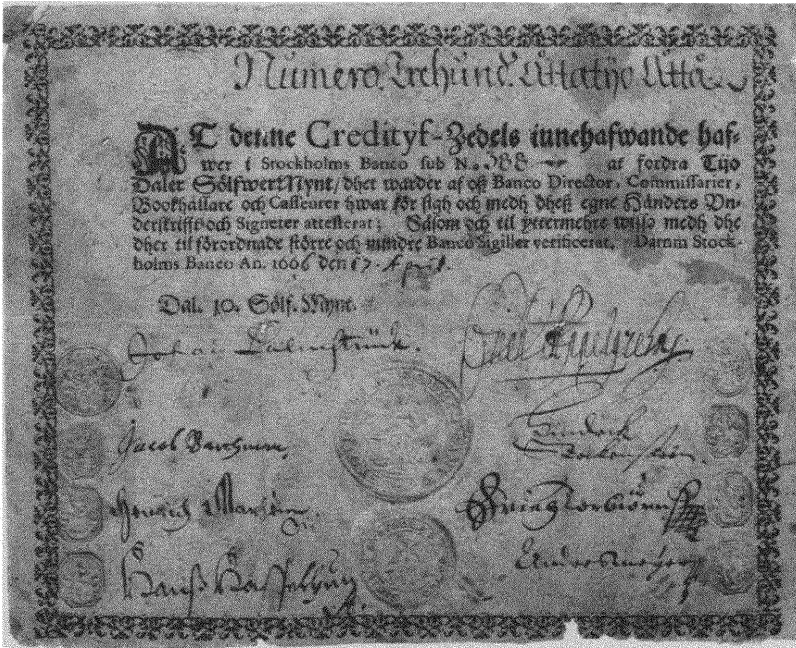 Numero. Trehund. Åttatijo Åtta
AT denne Credityf-Zedels innehafwande haf-
wer i Stockholms Banco sub N.o 388 at fordra Tijo
Daler SölfwerMynt/ dhet warder af oß Banco Director, Commissarier,
Bookhållare och Casseurer hwar för sigh och medh dheß egne Händers Vn-
derskrifft och Signeter attesterat; Såsom och til yttermehre wisso medh dhe
dher til förordnade större och mindre Banco Sigiller verificerat. Datum Stock-
holms Banco An. 1666 den 17. April.
Dal. 10. Sölf. Mynt.
Johan Palmstruck.
Jacob
Hans
Anders